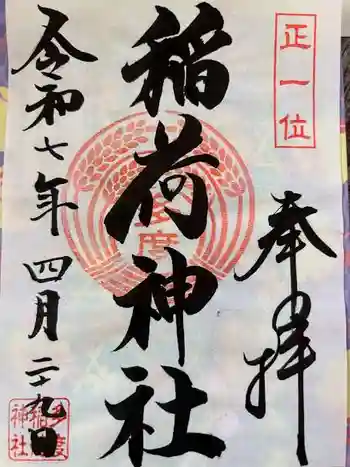 正一位
奉拝
稲荷神社
令和七年四月二十九日
多度
稲荷
神社